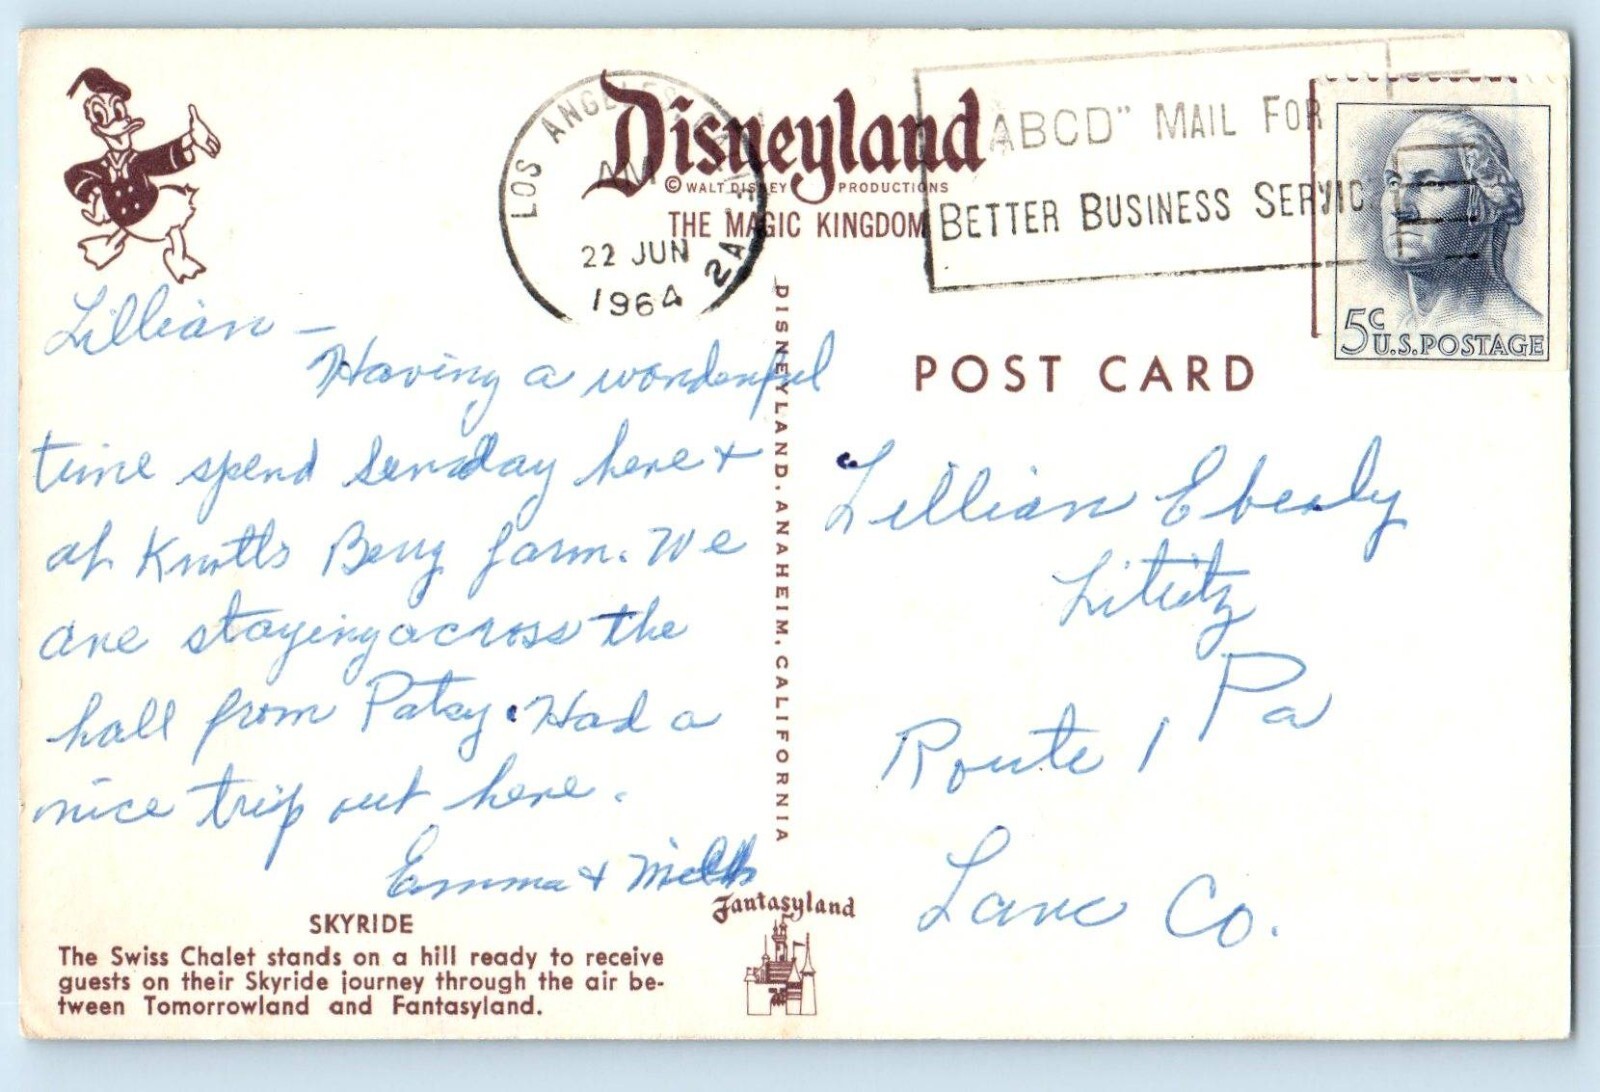 Disneyland
© WALT DISNEY PRODUCTIONS
THE MAGIC KINGDOM
LOS ANGELES, CALIF
AM
22 JUN
1964
2A
"ABCD" MAIL FOR
BETTER BUSINESS SERVIC
5c
U.S. POSTAGE
POST CARD
Lillian –
Having a wonderful
time spend Sunday here +
at Knotts Berry farm. We
are staying across the
hall from Patsy. Had a
nice trip out here.
Emma +
SKYRIDE
The Swiss Chalet stands on a hill ready to receive
guests on their Skyride journey through the air be-
tween Tomorrowland and Fantasyland.
DISNEYLAND, ANAHEIM, CALIFORNIA
Fantasyland
Lillian Eberly
Lititz
Pa
Route 1
Lanc Co.